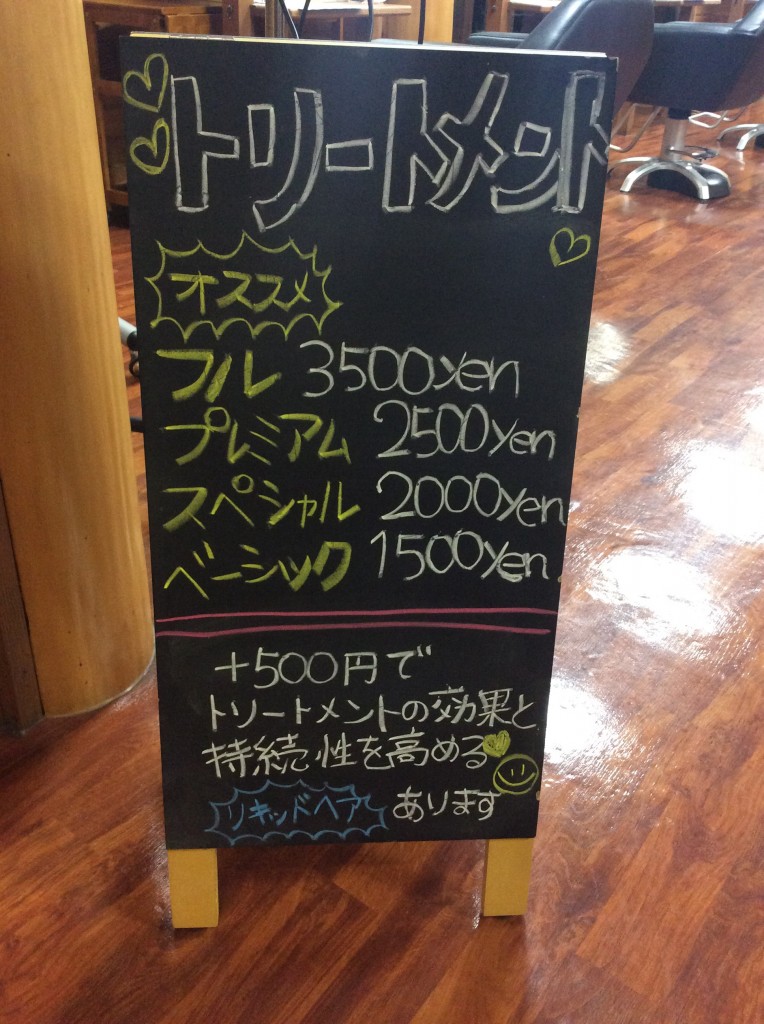 トリートメント
オススメ
フル 3500yen
プレミアム 2500yen
スペシャル 2000yen
ベーシック 1500yen
+500円で
トリートメントの効果と
持続性を高める
リキッドヘア あります